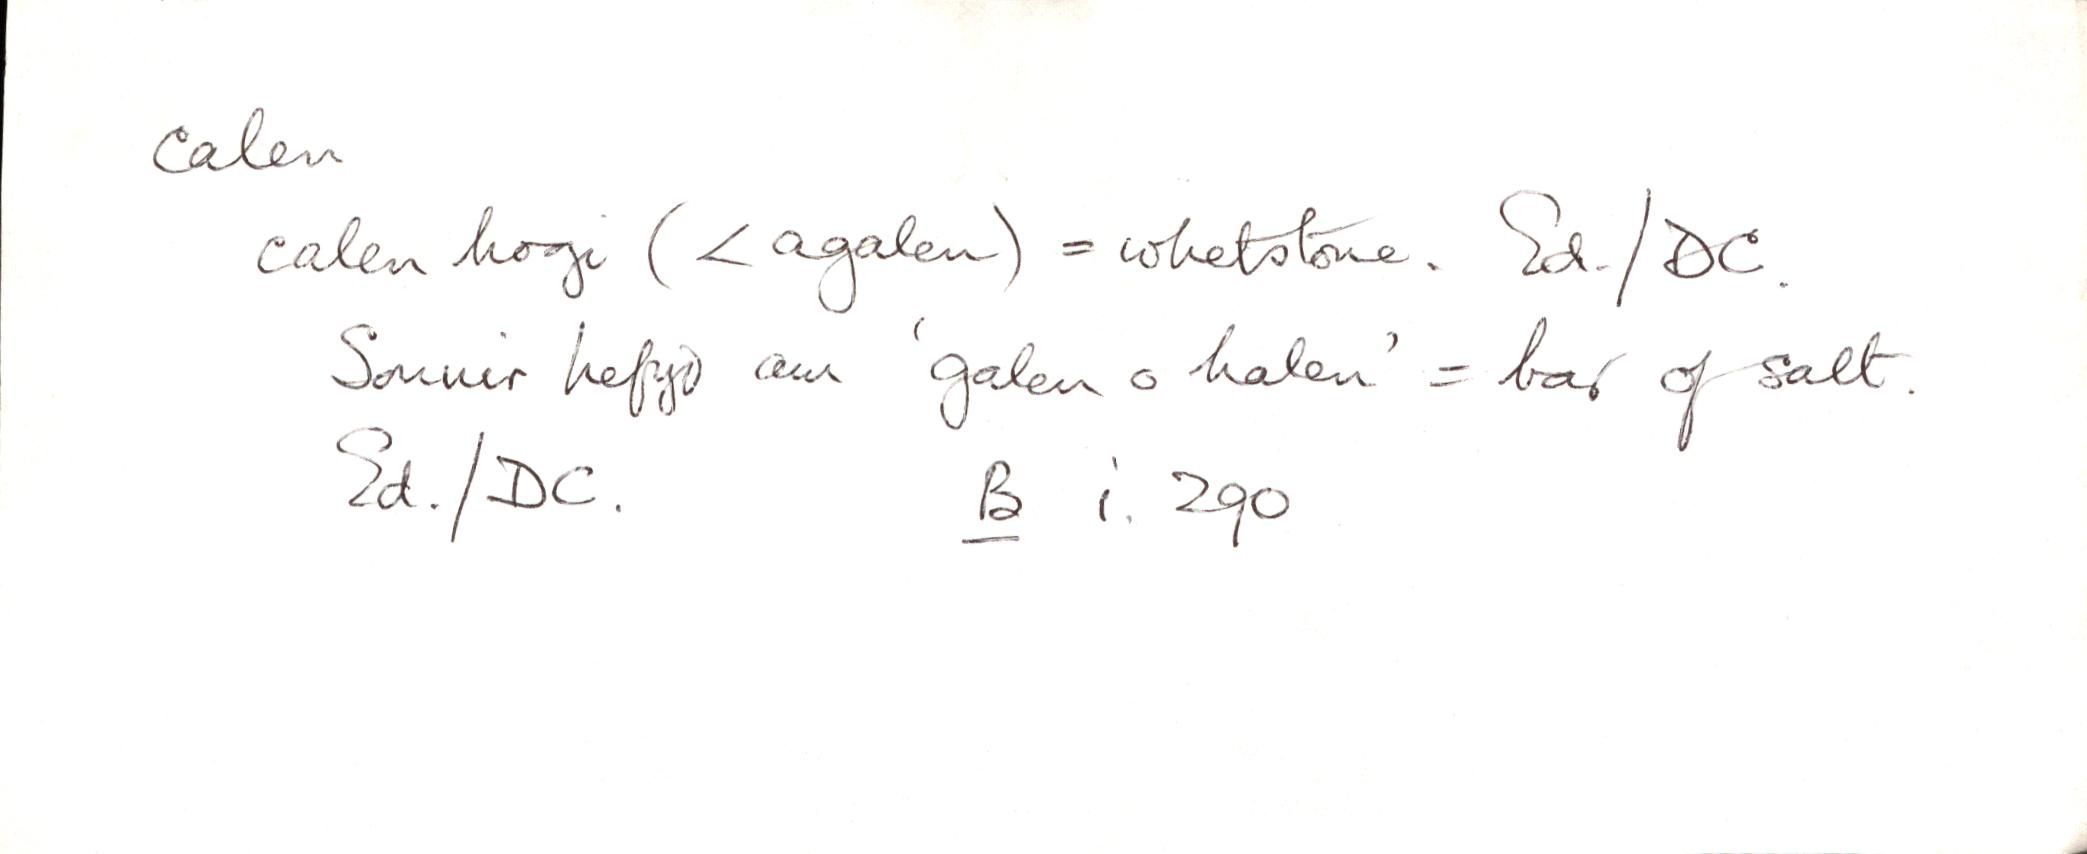 calen
calen hogi (< agalen) = whetstone. Ed./DC.
Sonnir hefyd am 'galen o halen' = bar of salt.
Ed./DC. B i. 290